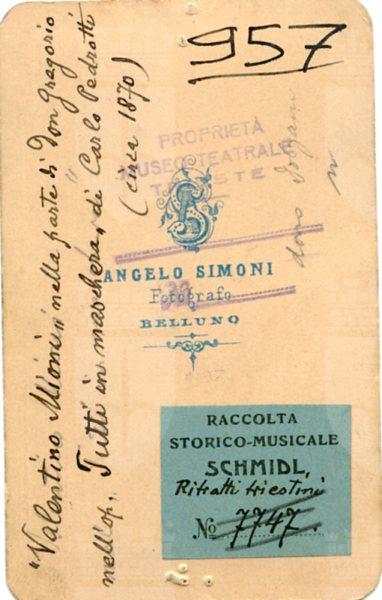 957
"Valentino Mioni" nella parte di Don Gregorio
nell'op. "Tutti in maschera" di Carlo Pedrotti
(circa 1870)
PROPRIETÀ
MUSEO TEATRALE
TRIESTE
S
ANGELO SIMONI
Fotografo
BELLUNO
dono
RACCOLTA
STORICO-MUSICALE
SCHMIDL,
Ritratti triestini
No 7747.